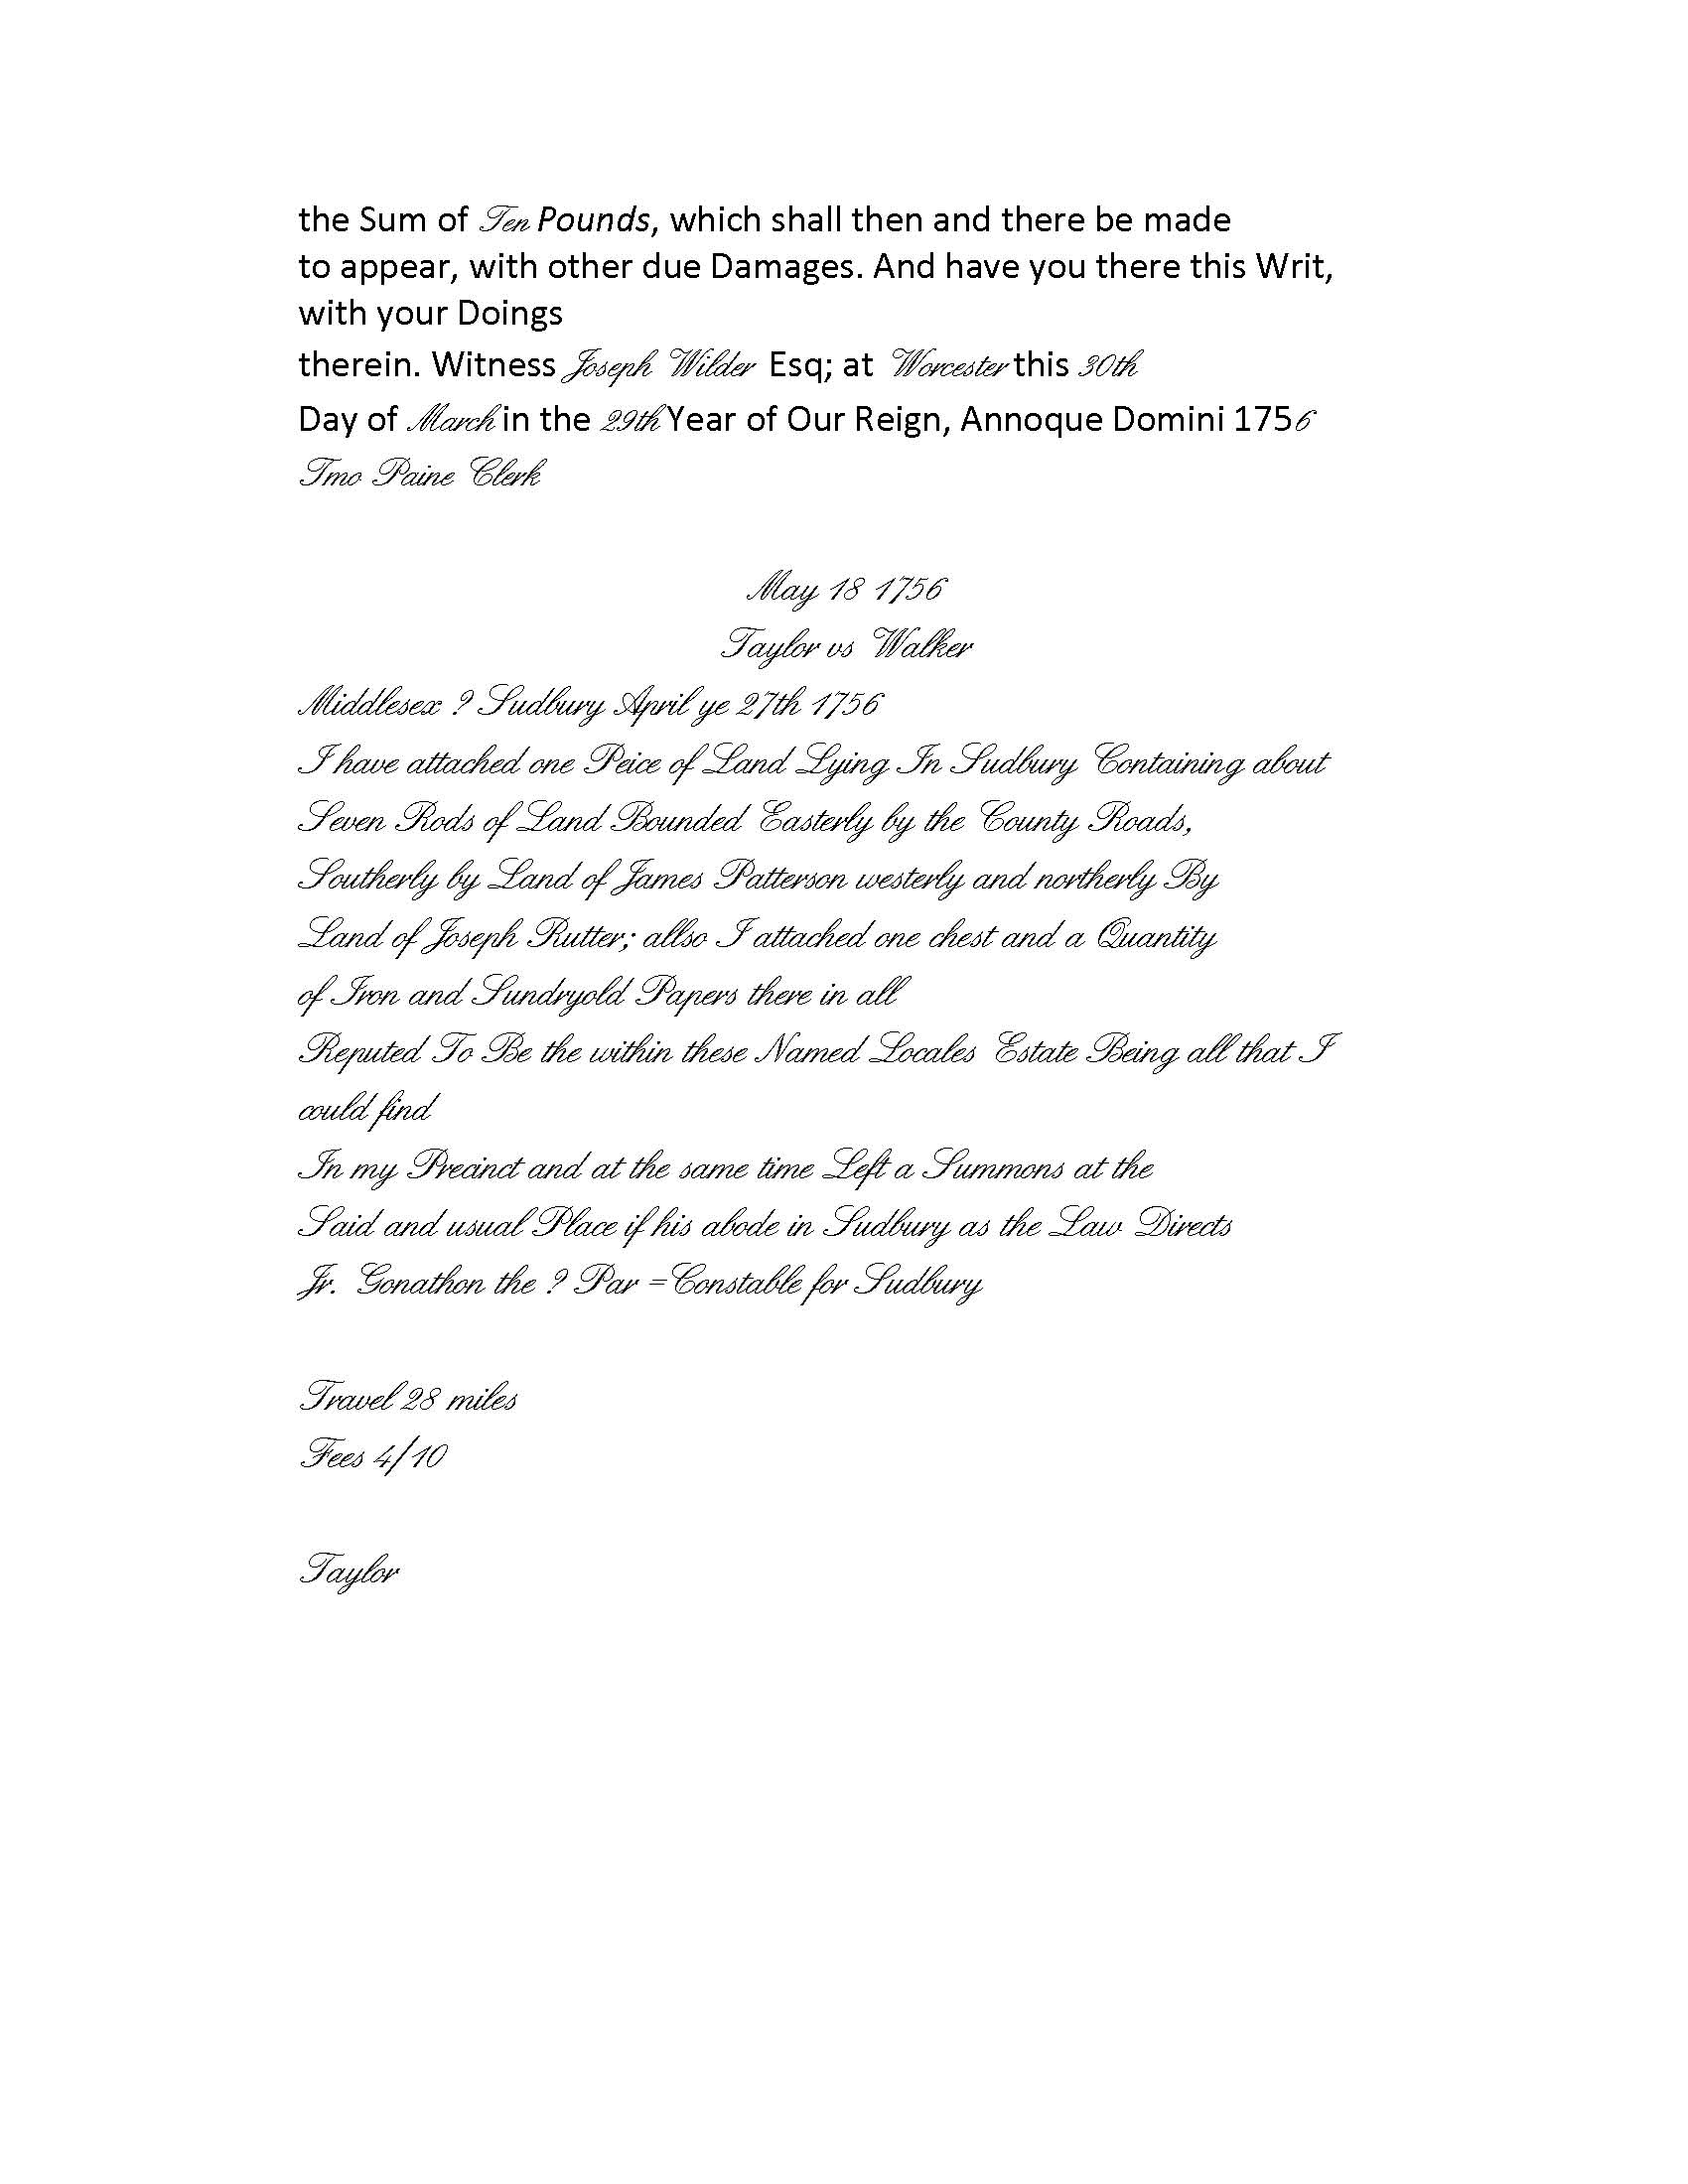 the Sum of Ten Pounds, which shall then and there be made
to appear, with other due Damages. And have you there this Writ,
with your Doings
therein. Witness Joseph Wilder Esq; at Worcester this 30th
Day of March in the 29th Year of Our Reign, Annoque Domini 1756
Tmo Paine Clerk
May 18 1756
Taylor vs Walker
Middlesex ? Sudbury April ye 27th 1756
I have attached one Peice of Land Lying In Sudbury Containing about
Seven Rods of Land Bounded Easterly by the County Roads,
Southerly by Land of James Patterson westerly and northerly By
Land of Joseph Rutter; allso I attached one chest and a Quantity
of Iron and Sundryold Papers there in all
Reputed To Be the within these Named Locales Estate Being all that I
could find
In my Precinct and at the same time Left a Summons at the
Said and usual Place if his abode in Sudbury as the Law Directs
Jr. Gonathon the ? Par =Constable for Sudbury
Travel 28 miles
Fees 4/10
Taylor